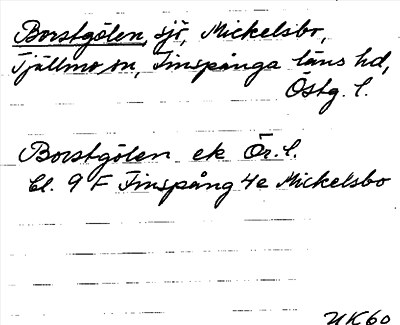 Borstgölen, sjö, Mickelsbo,
Tjällmo sn, Finspånga läns hd,
Östg. l.
Borstgölen ek Ör. l.
bl. 9 F Finspång 4e Mickelsbo
UK60